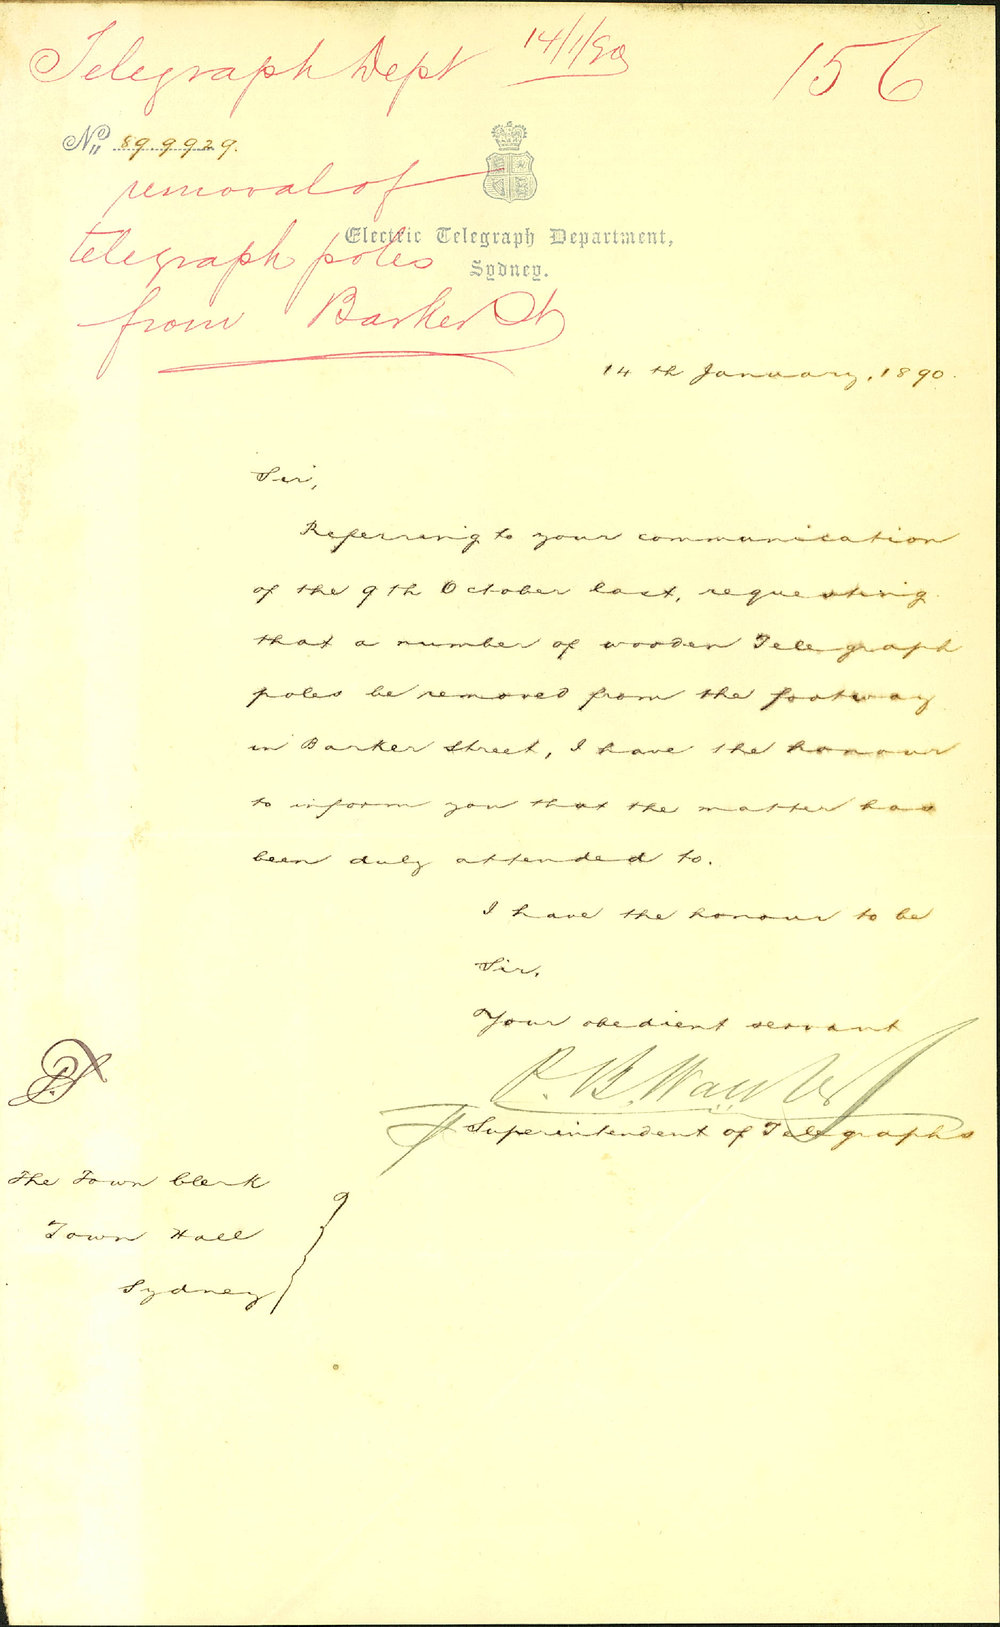 Telegraph Dept 14/1/90 156
No. 89.9929.
removal of
telegraph poles
from Barker St
Electric Telegraph Department,
Sydney.
14th January, 1890.
Sir,
Referring to your communication
of the 9th October last, requesting
that a number of wooden Telegraph
poles be removed from the footway
in Barker Street, I have the honour
to inform you that the matter has
been duly attended to.
I have the honour to be
Sir,
Your obedient servant
P. B. Walker
Superintendent of Telegraphs
The Town Clerk
Town Hall
Sydney